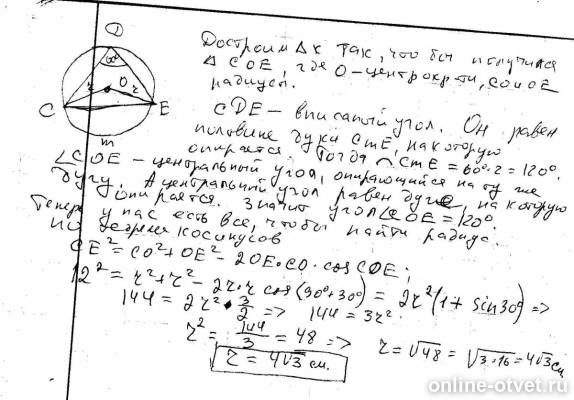 D
60°
r
O
r
C
E
m
Достроим Δк так, чтобы получился
Δ COE, где O – центр окр-ти, CO и OE
радиусы.
CDE – вписанный угол. Он равен
половине дуки CmE, на которую
опирается. Тогда ⌒CmE = 60°·2 = 120°.
∠COE – центральный угол, опирающийся на ту же
дугу. А центральный угол равен дуге, на которую
опирается. Значит угол ∠COE = 120°.
Теперь у нас есть все, чтобы найти радиус.
По теореме косинусов
CE² = CO² + OE² - 2OE·CO·cos COE;
12² = r² + r² - 2r·r cos(90°+30°) = 2r²(1 + sin30°) =>
144 = 2r² · 3/2 => 144 = 3r².
r² = 144/3 = 48 => r = √48 = √3·16 = 4√3 см.
r = 4√3 см.
online-otvet.ru